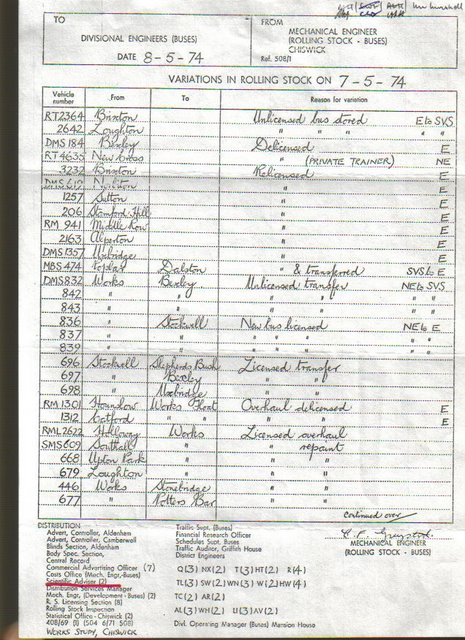 TO
FROM
DIVISIONAL ENGINEERS (BUSES)
MECHANICAL ENGINEER
(ROLLING STOCK - BUSES)
CHISWICK
DATE 8-5-74
Ref. 508/1
VARIATIONS IN ROLLING STOCK ON 7-5-74
Vehicle number From To Reason for variation
RT2364 Brixton Unlicensed bus stored E to SVS
2642 Loughton " " " " "
DMS 184 Bexley Delicensed E
RT 4635 New Cross " (PRIVATE TRAINER) NE
3232 Brixton Relicensed E
" E
1257 Sutton " E
206 Stamford Hill " E
RM 941 Middle Row " E
2163 Alperton " E
DMS1357 Uxbridge " E
MBS 474 Poplar Dalston " & transferred SVS to E
DMS832 Works Bexley Unlicensed transfer NE to SVS
842 " " " " " "
843 " " " " " "
836 " Stockwell New bus licensed NE to E
837 " " " " " " "
839 " " " " " " "
696 Stockwell Shepherds Bush Licensed transfer
697 " Bexley " "
698 " Uxbridge " "
RM 1301 Hounslow Works Float Overhaul delicensed E
1312 Catford " " " E
RML 2622 Holloway Works Licensed overhaul
SMS 609 Southall " " repaint
668 Upton Park " " "
679 Loughton " " "
446 Works Stonebridge " "
677 " Potters Bar " "
continued over
MECHANICAL ENGINEER
(ROLLING STOCK - BUSES)
DISTRIBUTION
Advert, Controller, Aldenham
Advert, Controller, Camberwell
Blinds Section, Aldenham
Body Spec. Section,
Central Record
Commercial Advertising Officer (7)
Costs Office (Mech. Engr. Buses)
Scientific Adviser (2)
Distribution Services Manager
Mech. Engr. (Development - Buses) (2)
R. S. Licensing Section (8)
Rolling Stock Inspection
Statistical Office - Chiswick (2)
408/69 (1) (504 6/71 508)
WORKS STUDY, CHISWICK
Traffic Supt. (Buses)
Financial Research Officer
Schedules Supt. Buses
Traffic Auditor, Griffith House
District Engineers
Q(3) NX(2) T(3) HT(2) R(4)
TL(3) SW(2) WN(3) W(2) HW(4)
TC(2) AR(2)
AL(3) WH(2) U(3) AV(2)
Divl. Operating Manager (Buses) Mansion House